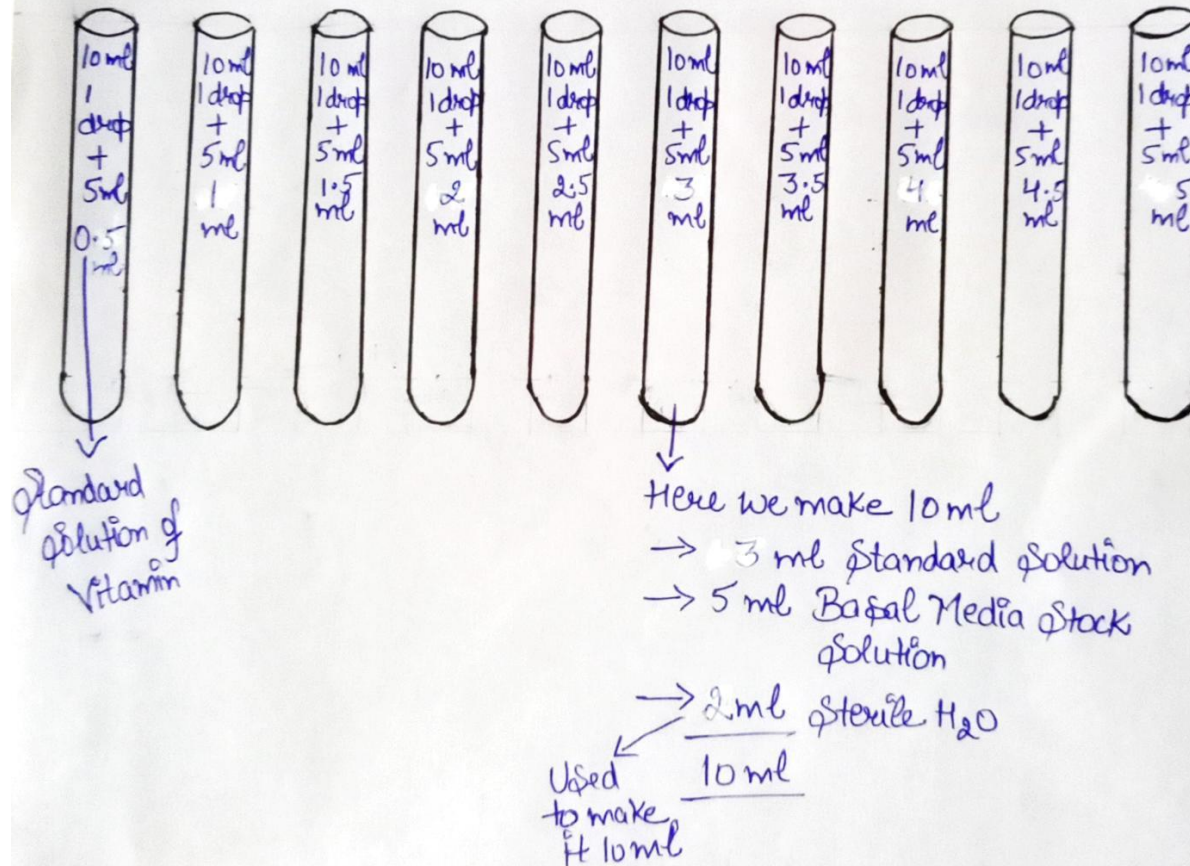 10ml
1
drop
+
5ml
0.5
ml
10ml
1drop
+
5ml
1
ml
10ml
1drop
+
5ml
1.5
ml
10ml
1drop
+
5ml
2
ml
10ml
1drop
+
5ml
2.5
ml
10ml
1drop
+
5ml
3
ml
10ml
1drop
+
5ml
3.5
ml
10ml
1drop
+
5ml
4
ml
10ml
1drop
+
5ml
4.5
ml
10ml
1drop
+
5ml
5
ml
Standard
Solution of
Vitamin
Here we make 10ml
→ 3 ml Standard Solution
→ 5 ml Basal Media Stock
Solution
→ 2ml Sterile H₂O
10ml
Used
to make
it 10ml